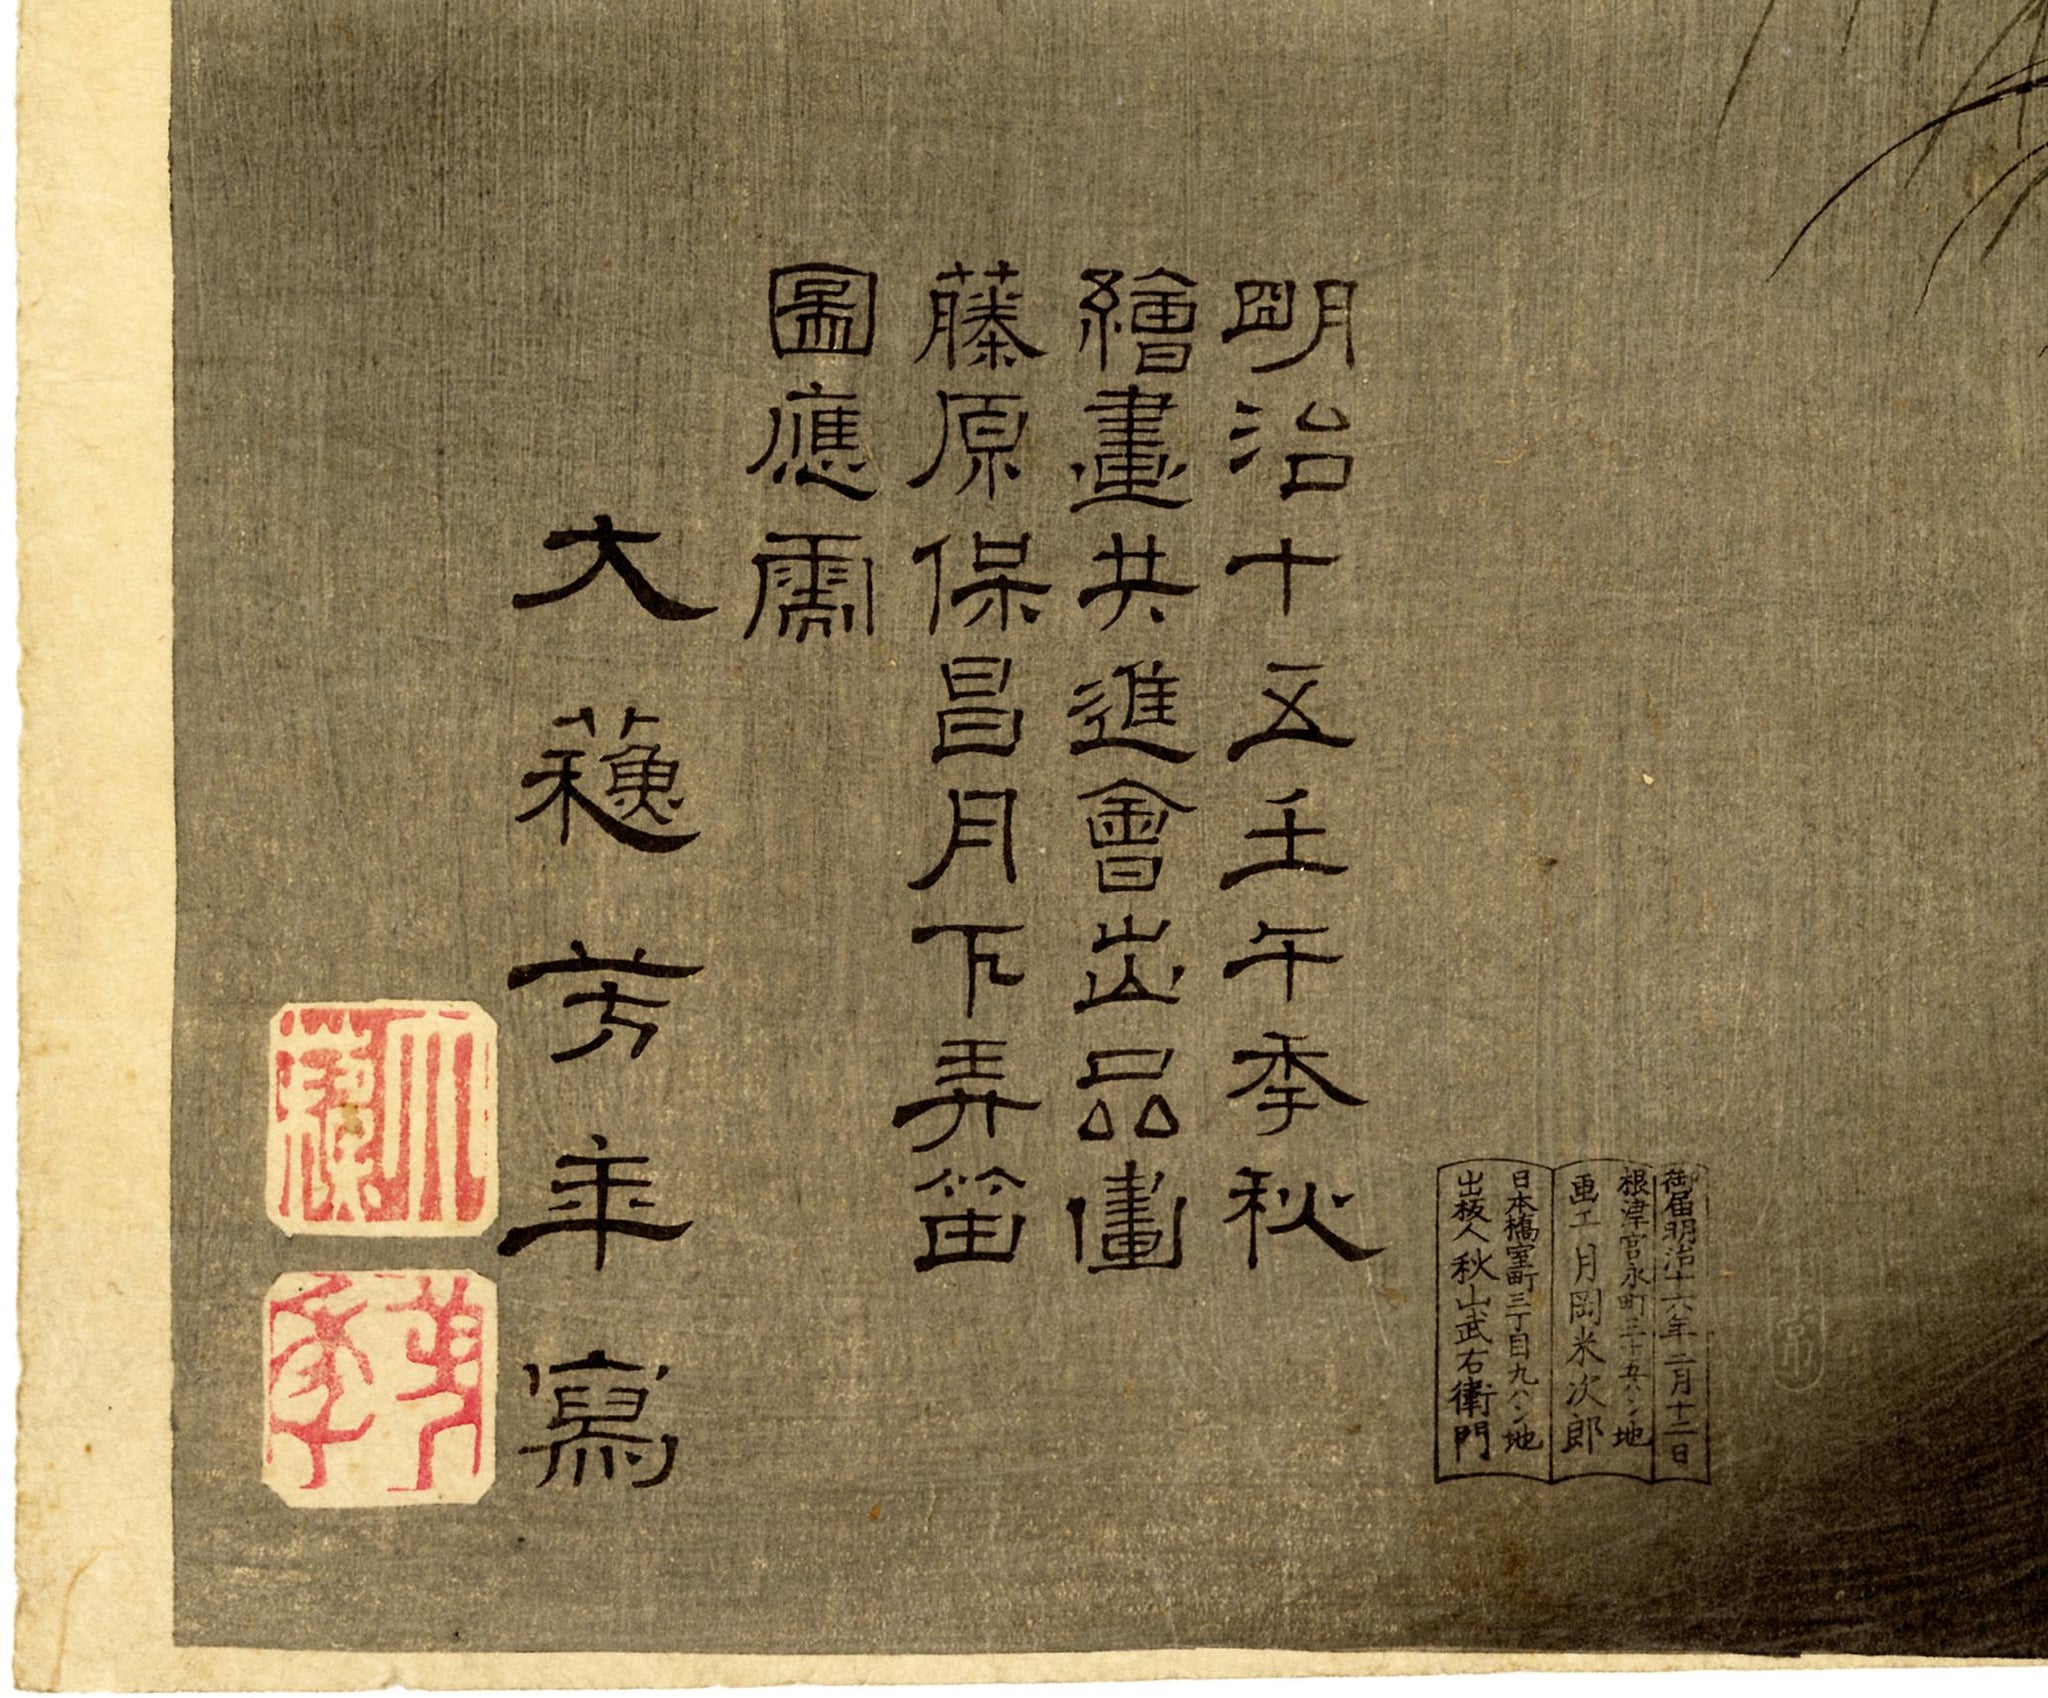 御届明治十六年二月十二日
根津宮永町三十五ハン地
画工 月岡米次郎
日本橋室町三丁目九ハン地
出板人 秋山武右衛門
明治十五壬午季秋
繪畫共進會出品畫
藤原保昌月下弄笛
圖應需
大蘇芳年寫
大蘇
芳年